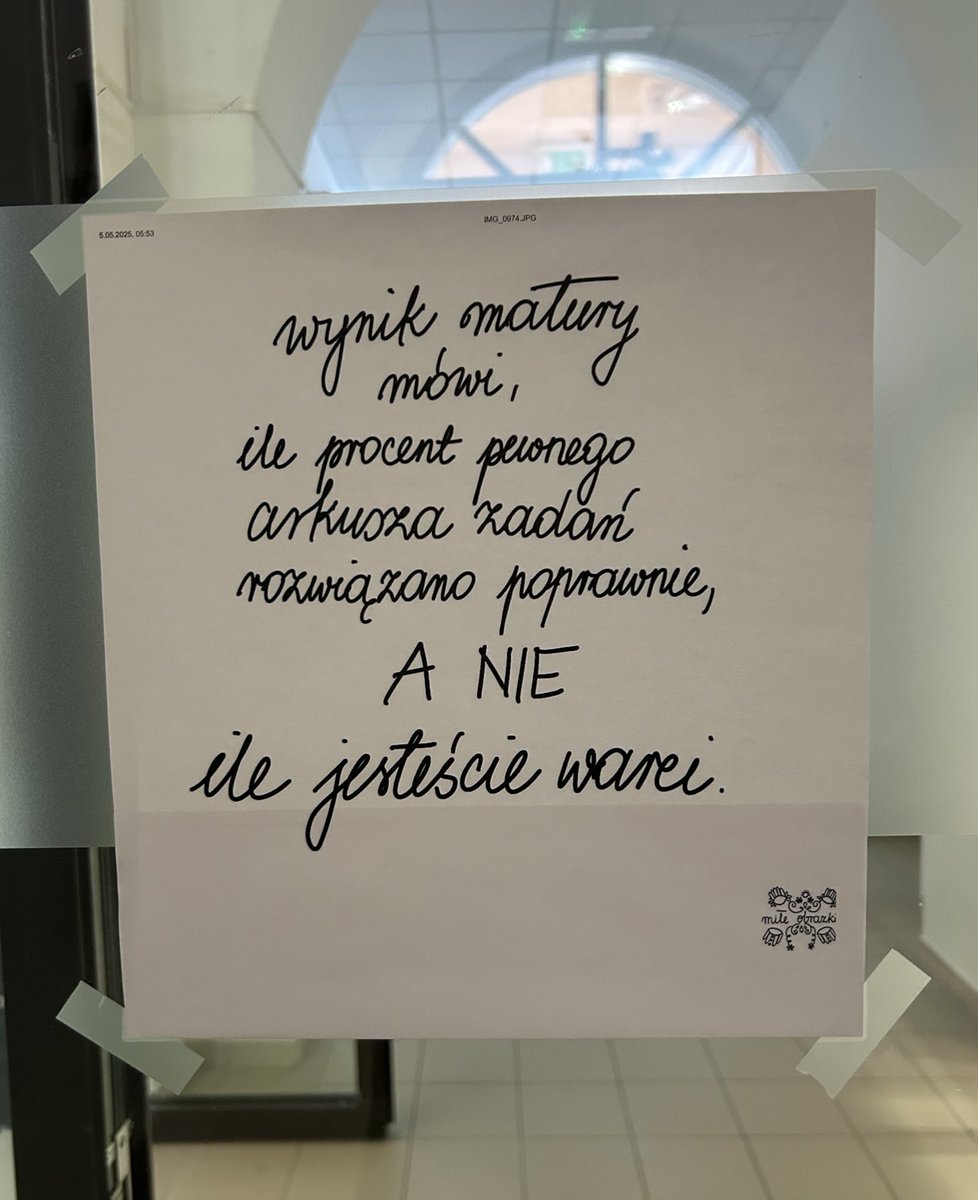 IMG_0974.JPG
5.05.2025, 05:53
wynik matury
mówi,
ile procent pewnego
arkusza zadań
rozwiązano poprawnie,
A NIE
ile jesteście warci.
miłe obrazki